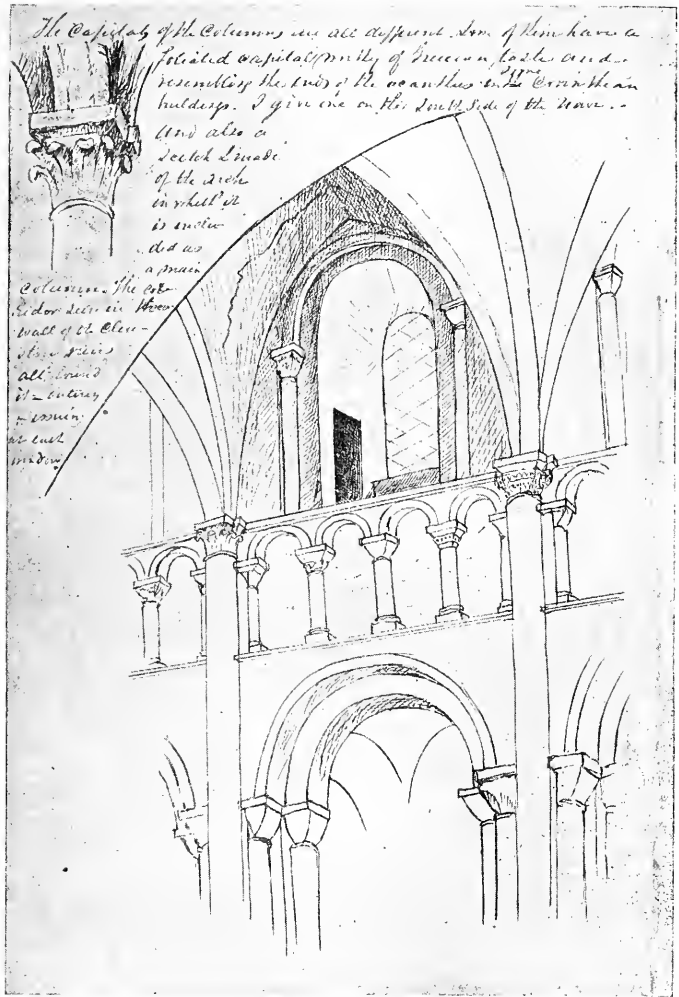 The Capitals of the Columns are all different. Some of them have a
foliated capital purely of Grecian taste and
resembling the ends of the acanthus in some Corinthean
buildings. I give one on this South Side of the Nave.
And also a
Sketch I made
of the arch
in which it
is inclu-
ded as
a main
Column. The cor-
ridor seen in
wall of the Cleu-
runs
all round
it
at each
window